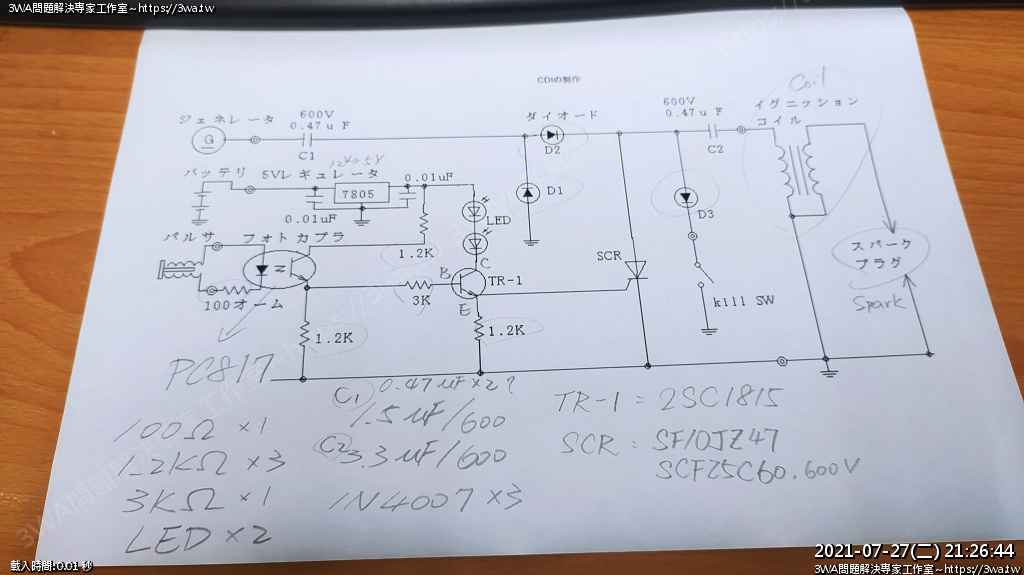 3WA問題解決專家工作室~https://3wa.tw
CDIの制作
Coil
ジェネレータ
600V
0.47uF
G
C1
ダイオード
D2
600V
0.47uF
C2
イグニッション
コイル
バッテリ
5Vレギュレータ
12V→5V
7805
0.01uF
0.01uF
LED
D1
D3
パルサ
フォトカプラ
1.2K
100オーム
B
C
TR-1
3K
E
SCR
スパーク
プラグ
Spark
kill SW
1.2K
1.2K
PC817
C1 0.47uF×2?
1.5uF/600
C2 3.3uF/600
1N4007×3
100Ω ×1
1.2KΩ ×3
3KΩ ×1
LED×2
TR-1 = 2SC1815
SCR : SF10JZ47
SCF25C60.600V
2021-07-27(二) 21:26:44
載入時間:0.01 秒
3WA問題解決專家工作室~https://3wa.tw